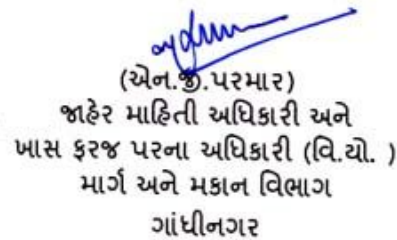 (એન.જી.પરમાર)
જાહેર માહિતી અધિકારી અને
ખાસ ફરજ પરના અધિકારી (વિ.યો. )
માર્ગ અને મકાન વિભાગ
ગાંધીનગર